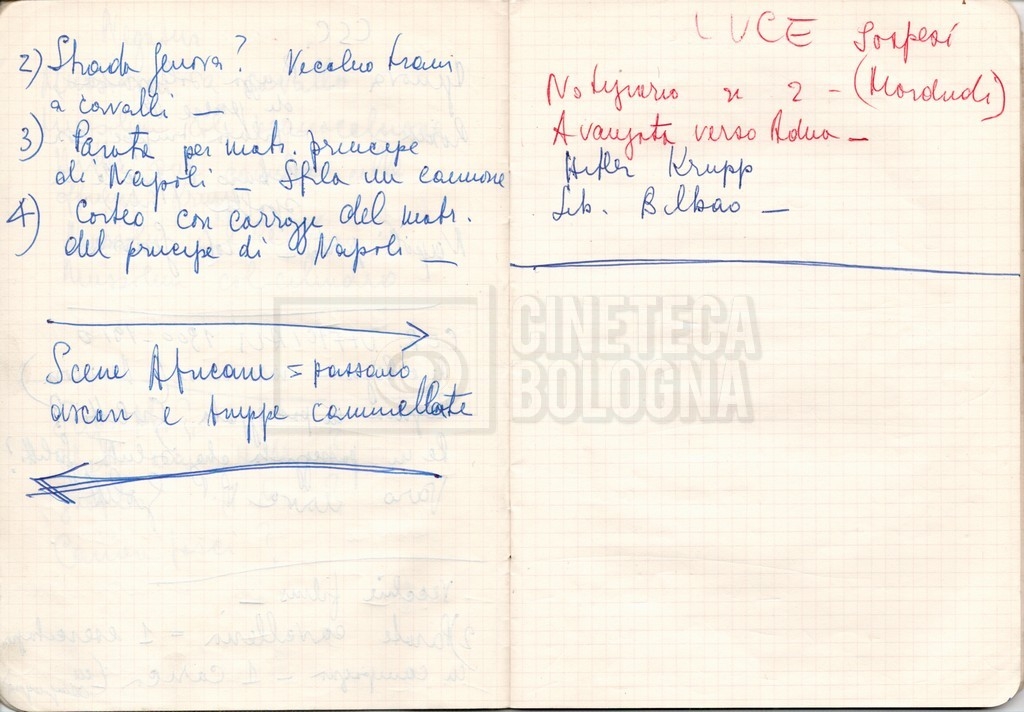 2) Strada Genova? Vecchio tram
a cavalli —
3) Parata per matr. principe
di Napoli — Sfila un cannone
4) Corteo con carrozze del matr.
del principe di Napoli —
Scene Africane = passano
ascari e truppe cammellate
LUCE Sospesi
Notiziario n 2 -
Avanzata verso Adua —
Hitler Krupp
Lib. Bilbao —
CINETECA
BOLOGNA